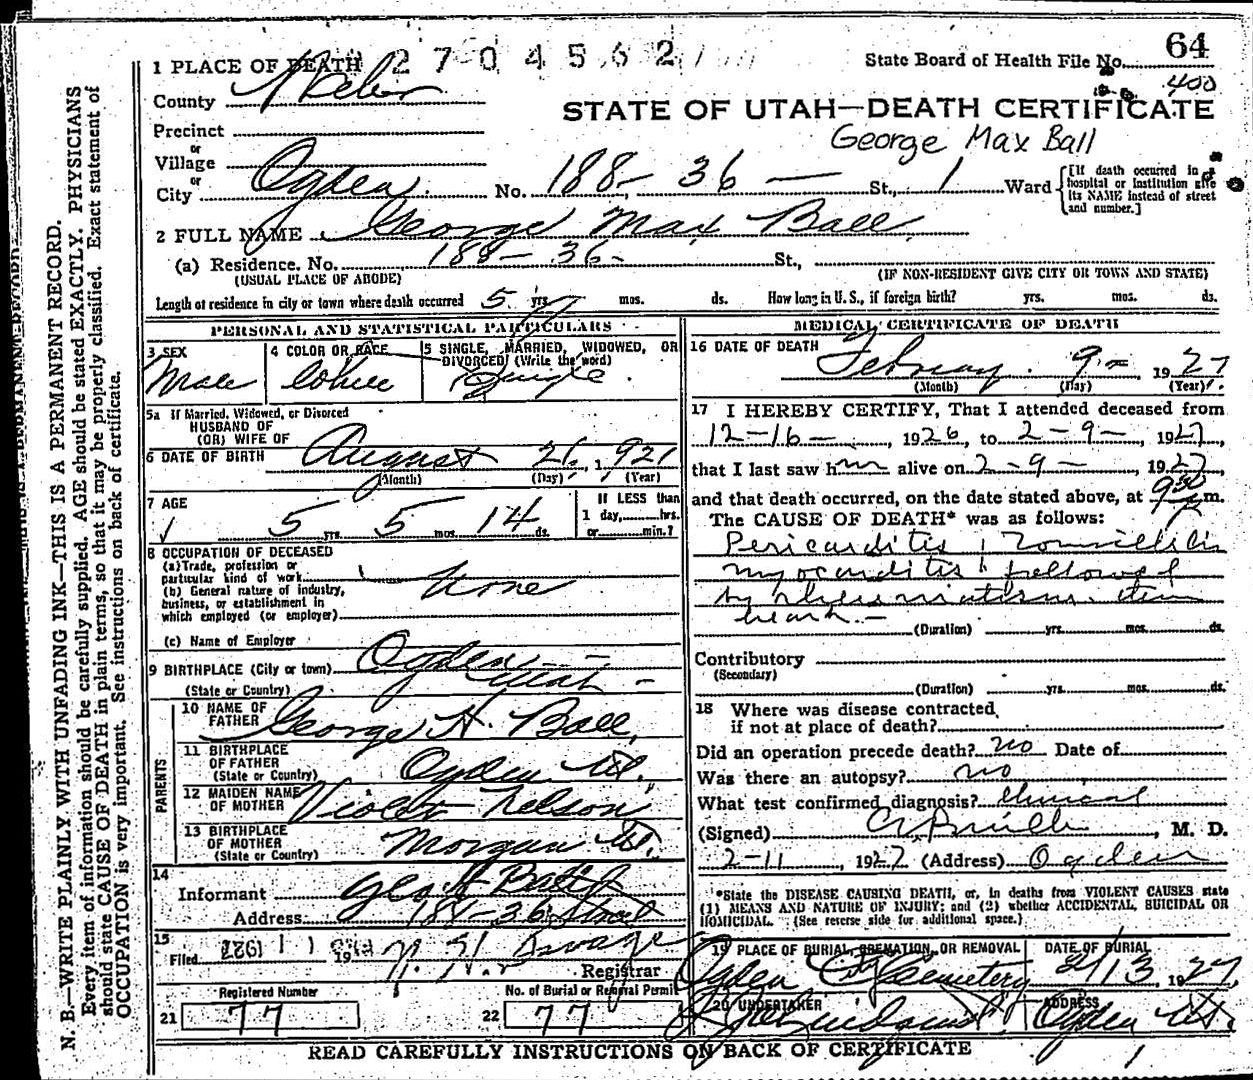 64
State Board of Health File No.
400
2704562
1 PLACE OF DEATH
County Weber
STATE OF UTAH—DEATH CERTIFICATE
George Max Ball
Precinct
or
Village
or
City Ogden No. 188- 36 — St., 1 Ward
[If death occurred in a hospital or institution give its NAME instead of street and number.]
2 FULL NAME George Max Ball.
(a) Residence. No. 188- 36- St.,
(USUAL PLACE OF ABODE) (IF NON-RESIDENT GIVE CITY OR TOWN AND STATE)
Length of residence in city or town where death occurred 5 yrs. mos. ds. How long in U. S., if foreign birth? yrs. mos. ds.
PERSONAL AND STATISTICAL PARTICULARS
3 SEX 4 COLOR OR RACE 5 SINGLE, MARRIED, WIDOWED, OR
DIVORCED (Write the word)
Male White Single
5a If Married, Widowed, or Divorced
HUSBAND OF
(OR) WIFE OF
6 DATE OF BIRTH August 26, 1921
(Month) (Day) (Year)
7 AGE
5 yrs. 5 mos. 14 ds.
If LESS than
1 day, hrs.
or min.?
8 OCCUPATION OF DECEASED
(a) Trade, profession or
particular kind of work
(b) General nature of industry,
business, or establishment in
which employed (or employer)
None
(c) Name of Employer
9 BIRTHPLACE (City or town) Ogden
(State or Country) Utah
PARENTS
10 NAME OF
FATHER George H. Ball,
11 BIRTHPLACE
OF FATHER
(State or Country) Ogden Ut.
12 MAIDEN NAME
OF MOTHER Violet Nelson
13 BIRTHPLACE
OF MOTHER
(State or Country) Morgan Ut.
14
Informant Geo H Ball
Address 188-36 Street
15
Filed 19
Registrar
Registered Number
21 77
No. of Burial or Removal Permit
22 77
MEDICAL CERTIFICATE OF DEATH
16 DATE OF DEATH
February 9- 1927
(Month) (Day) (Year)
17 I HEREBY CERTIFY, That I attended deceased from
12-16-, 1926, to 2-9-, 1927,
that I last saw him alive on 2-9-, 1927,
and that death occurred, on the date stated above, at 9 30 m.
The CAUSE OF DEATH* was as follows:
Pericarditis, Tonsillitis
myocarditis followed
by rheumatism
heart.-
(Duration) yrs. mos. ds.
Contributory
(Secondary)
(Duration) yrs. mos. ds.
18 Where was disease contracted,
if not at place of death?
Did an operation precede death? no Date of
Was there an autopsy? no
What test confirmed diagnosis? clinical
(Signed) , M. D.
2-11, 1927 (Address) Ogden
*State the DISEASE CAUSING DEATH, or, in deaths from VIOLENT CAUSES state
(1) MEANS AND NATURE OF INJURY; and (2) whether ACCIDENTAL, SUICIDAL OR
HOMICIDAL. (See reverse side for additional space.)
19 PLACE OF BURIAL, CREMATION, OR REMOVAL DATE OF BURIAL
Ogden City Cemetery 2/13 1927
20 UNDERTAKER ADDRESS
Ogden Ut.
READ CAREFULLY INSTRUCTIONS ON BACK OF CERTIFICATE
N. B.—WRITE PLAINLY WITH UNFADING INK—THIS IS A PERMANENT RECORD.
Every item of information should be carefully supplied. AGE should be stated EXACTLY. PHYSICIANS
should state CAUSE OF DEATH in plain terms, so that it may be properly classified. Exact statement of
OCCUPATION is very important. See instructions on back of certificate.